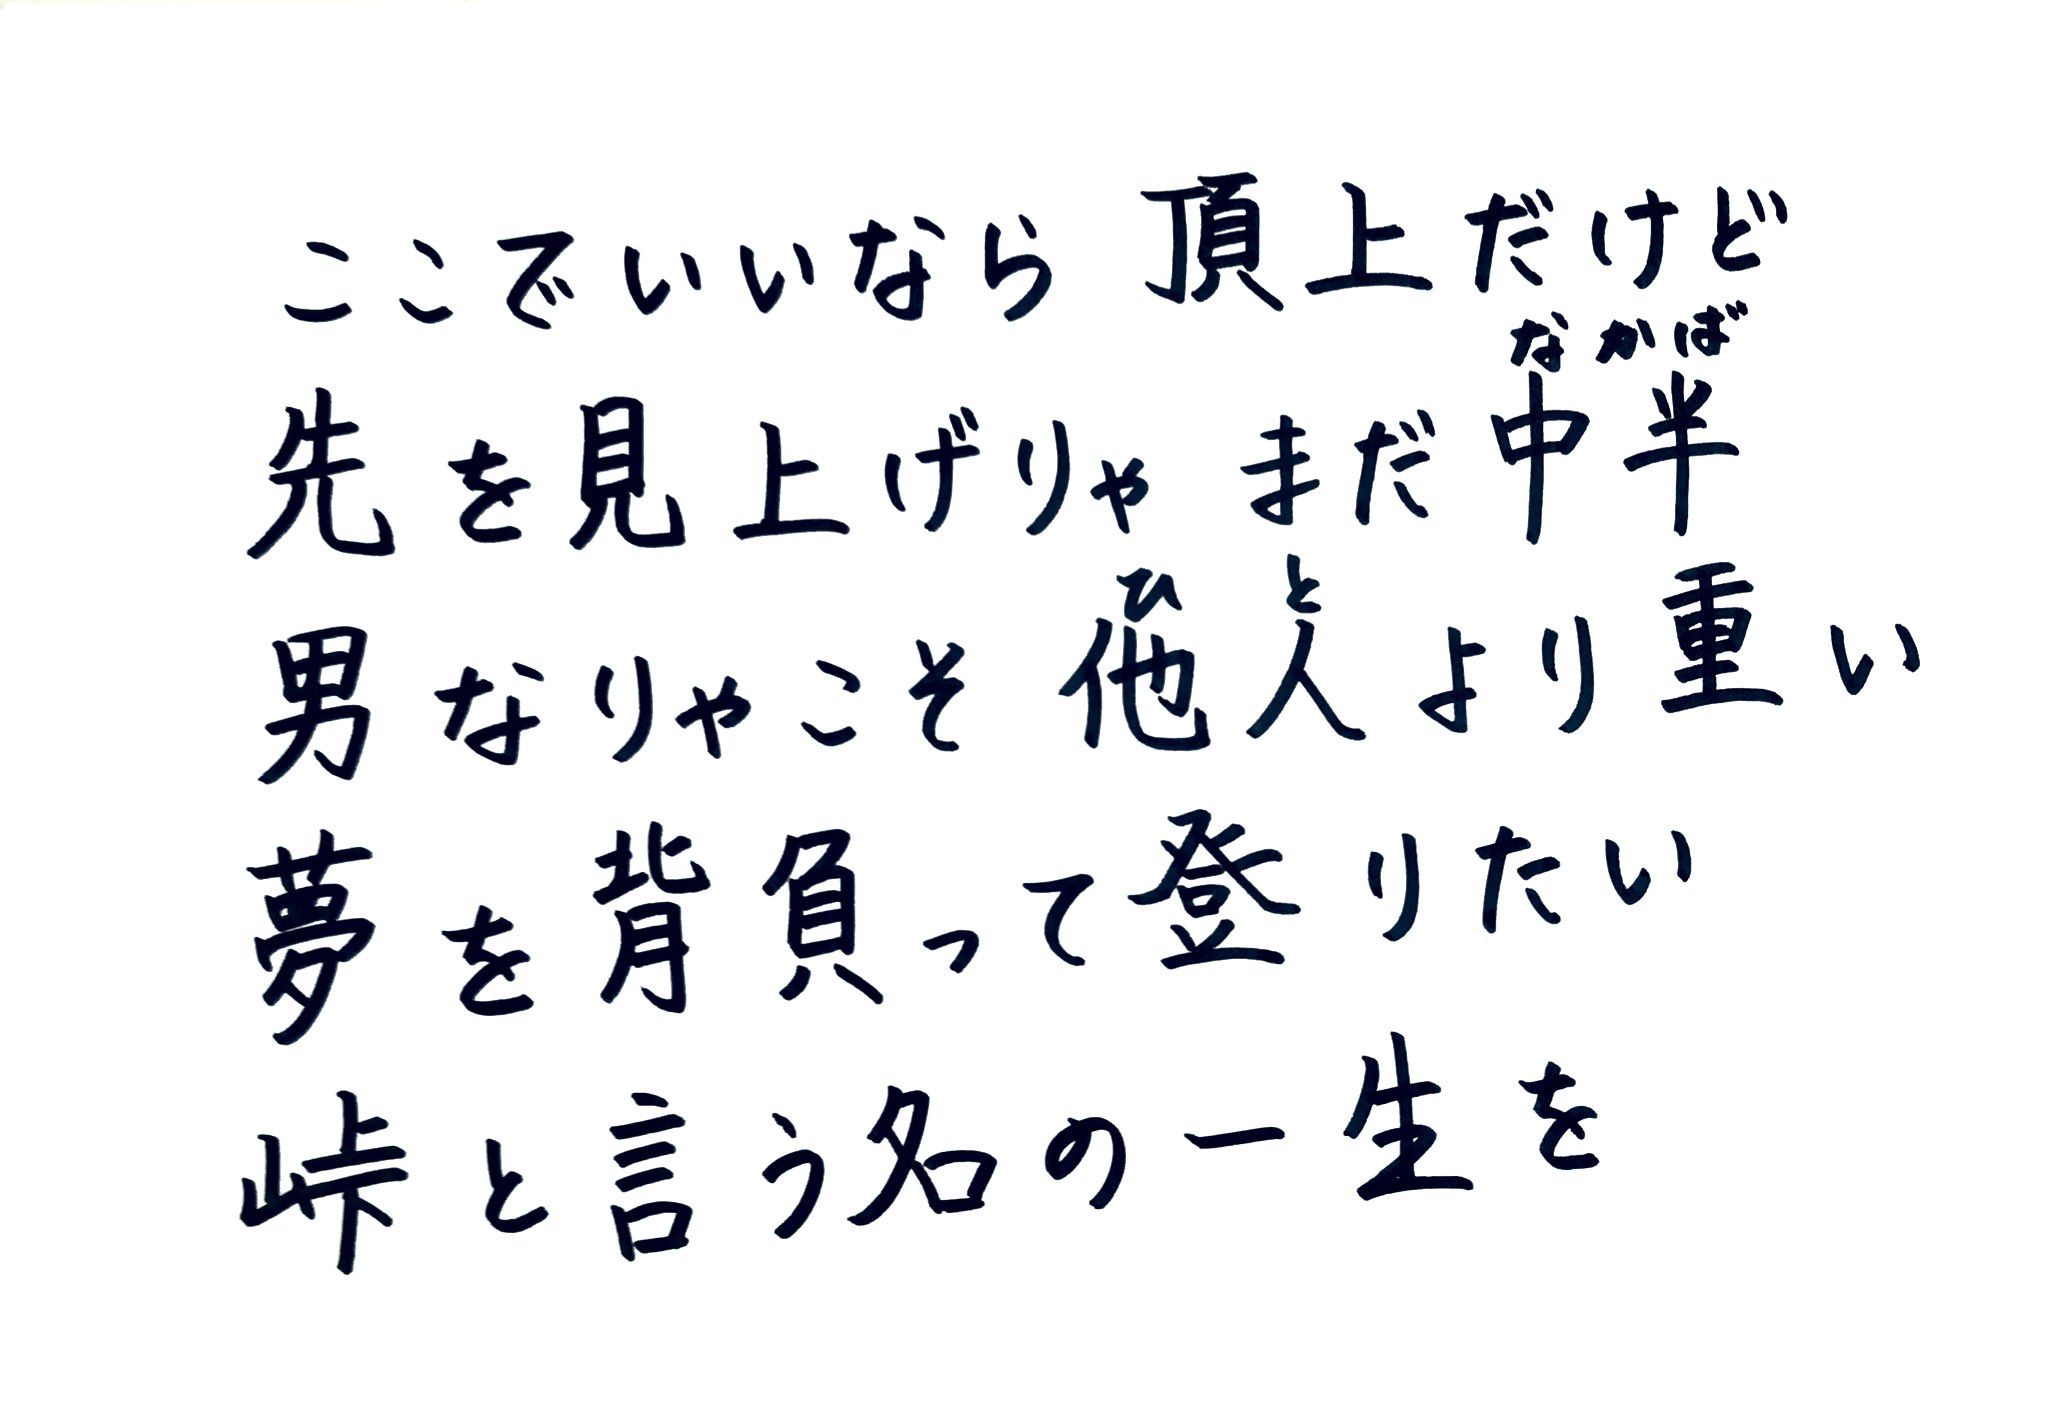 ここでいいなら 頂上だけど
なかば
先を見上げりゃ まだ中半
ひと
男なりゃこそ 他人より重い
夢を背負って登りたい
峠と言う名の一生を